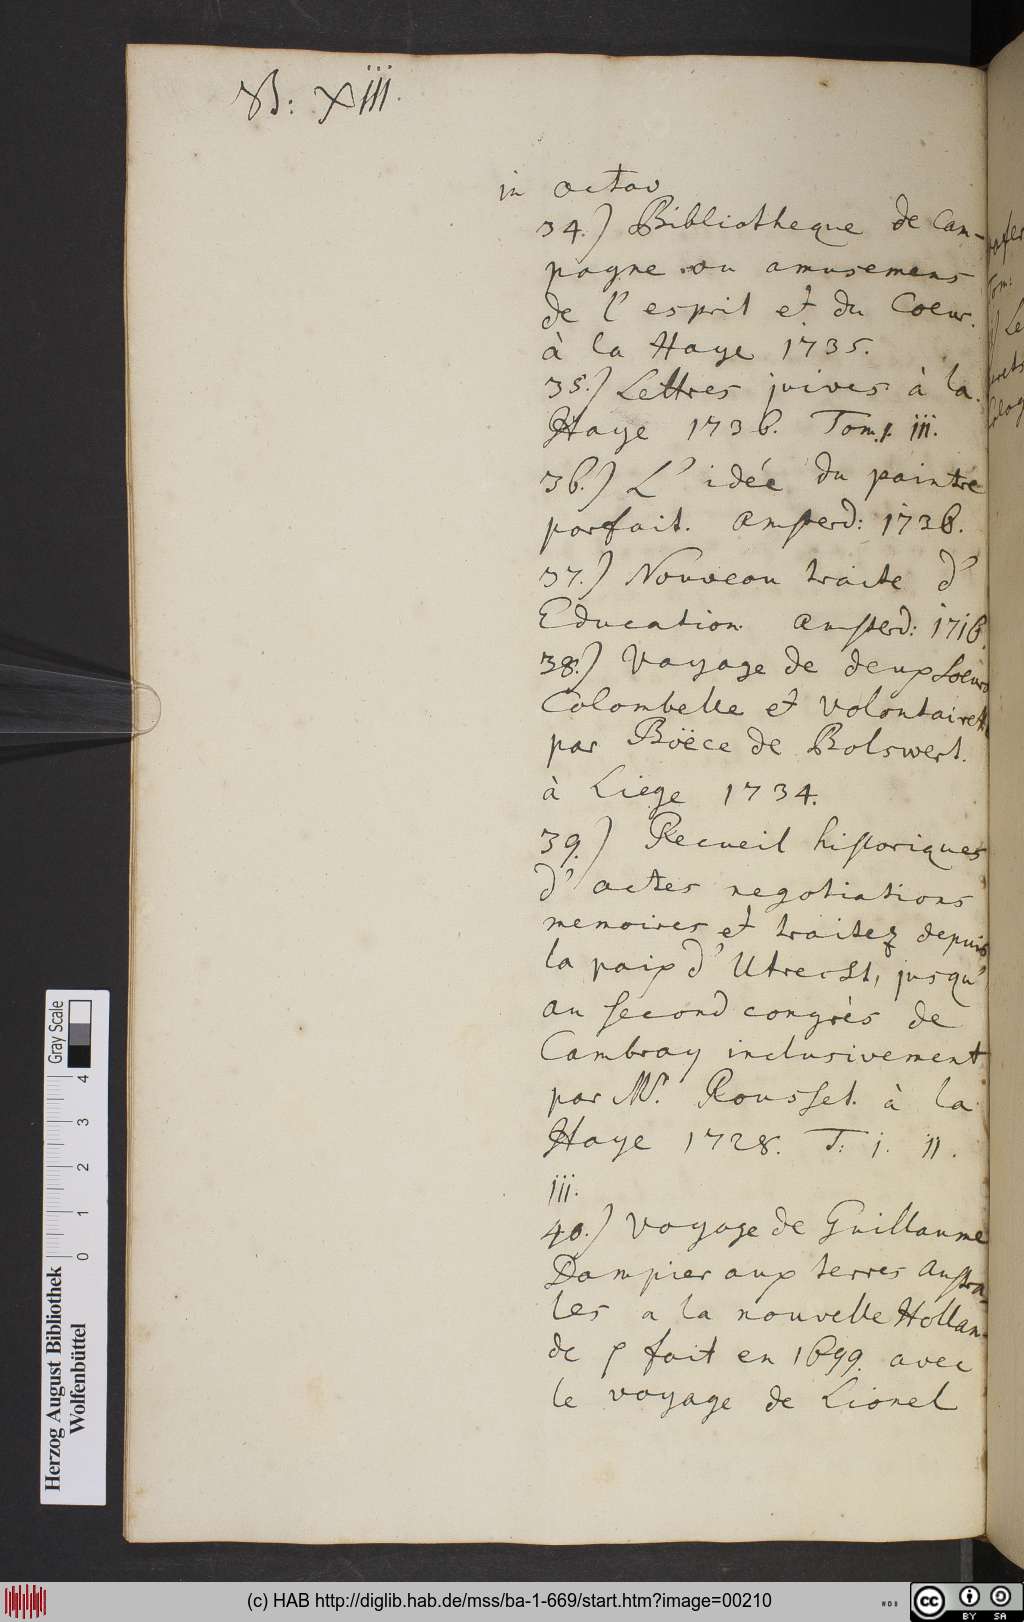 B: Xiii.
in octav
34.) Bibliotheque de Cam-
pagne ou amusemens
de l' esprit et du Coeur.
à la Haye 1735.
35.) Lettres juives à la
Haye 1736. Tom. iii.
36.) L' idée du paintre
parfait. Amsterd: 1736.
37.) Nouveau traite d'
Education Amsterd: 1716.
38.) Voyage de deux Soeurs
Colombelle et Volontairette
par Boëce de Bolswert.
à Liege 1734.
39.) Recueil historiques
d' actes negotiations
memoires et traitez depuis
la paix d' Utrecht, jusqu'
au second congrès de
Cambray inclusivement
par Mr. Rousset. à la
Haye 1728. T: i. ii.
iii.
40.) Voyage de Guillaume
Dampier aux terres Austra-
les a la nouvelle Hollan-
de fait en 1699. avec
le voyage de Lionel
Gray Scale
0 1 2 3 4
Herzog August Bibliothek
Wolfenbüttel
(c) HAB http://diglib.hab.de/mss/ba-1-669/start.htm?image=00210
cc BY SA